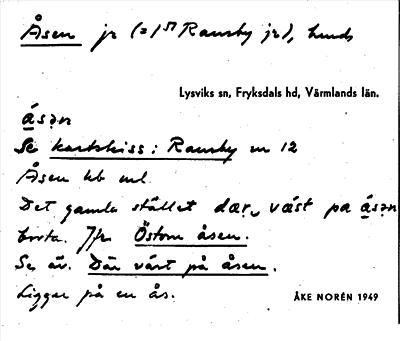 Åsen jr (=1st Ransby jr), hmds
Lysviks sn, Fryksdals hd, Värmlands län.
ásən
Se kartskiss: Ransby nr 12
Åsen hb ml.
Det gamla stället dær væst pa ásən
borta. Jfr Östom åsen.
Se äv. Där väst på åsen.
Ligger på en ås.
ÅKE NORÉN 1949